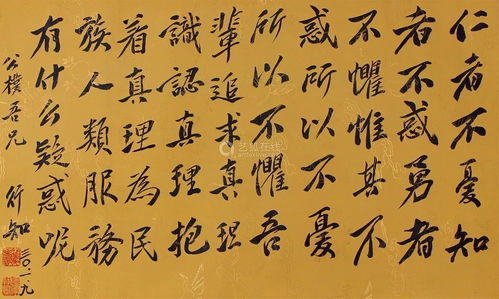 仁者不憂知
者不惑勇者
不懼惟其不
惑所以不憂
所以不懼吾
輩追求真理
識認真理抱
着真理為民
族人類服務
有什么疑惑呢
公樸吾兄 行知
艺狐在线